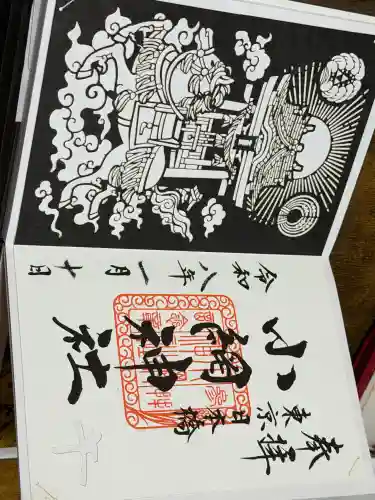 奉拝
東京
日本橋
小網神社
令和八年一月十日